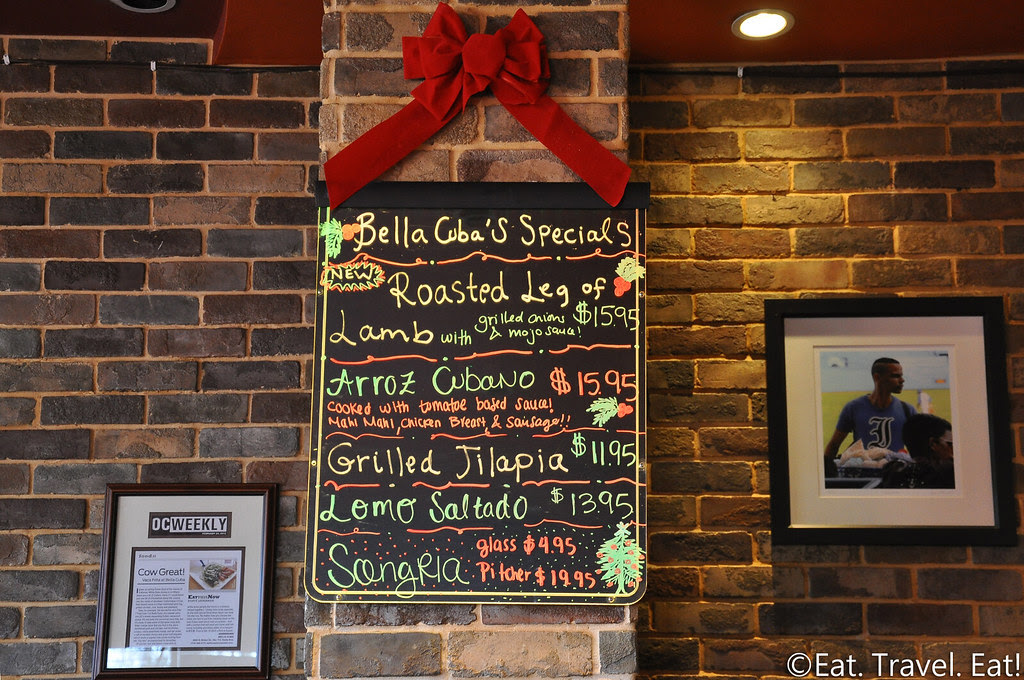 Bella Cuba's Specials
NEW
Roasted Leg of
Lamb with grilled onions $15.95
& mojo sauce!
Arroz Cubano $15.95
Cooked with tomatoe based sauce!
Mahi Mahi, Chicken Breast & Sausage!!
Grilled Tilapia $11.95
Lomo Saltado $13.95
Sangria glass $4.95
Pitcher $19.95
OC WEEKLY
Cow Great!
Vaca Frita at Bella Cuba
EatThisNow
©Eat. Travel. Eat!